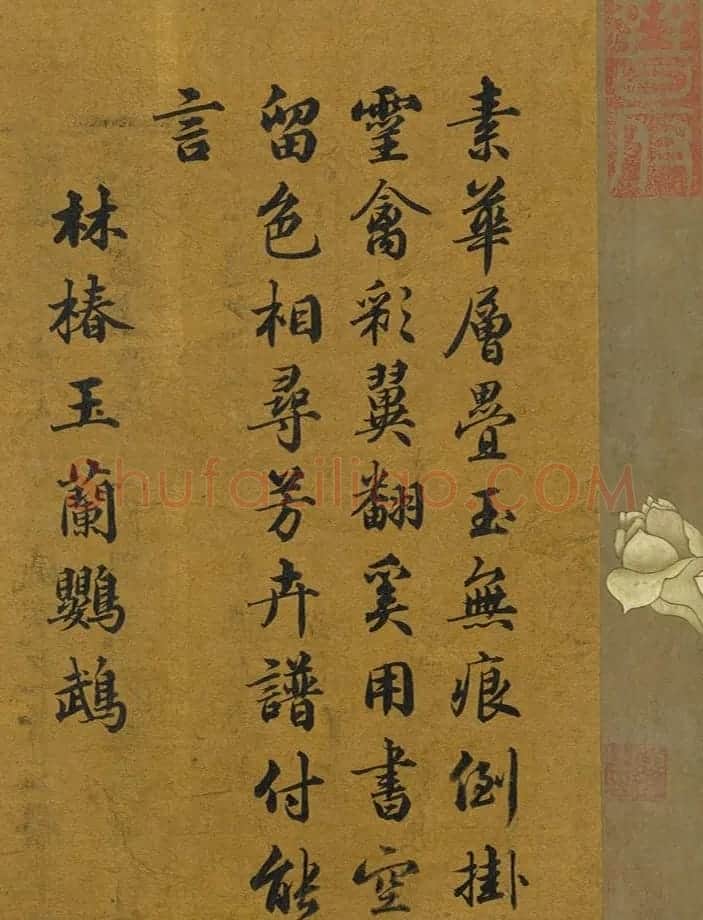 素華層疊玉無痕倒掛
靈禽彩翼翻奚用書空
留色相尋芳卉譜付能
言
林椿玉蘭鸚鵡
shufaziliao.COM